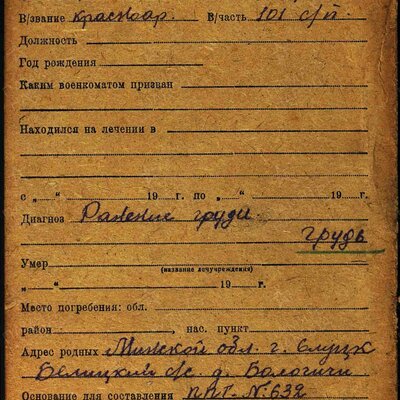 В/звание красноар. В/часть 101 с/п.
Должность
Год рождения
Каким военкоматом призван
Находился на лечении в
с „ “ 19 г. по „ “ 19 г.
Диагноз Ранение груди
грудь
Умер
(название лечучреждения)
„ “ 19 г.
Место погребения: обл.
район , нас. пункт
Адрес родных Минской обл. г. Слуцк
Белицкий с/с. д. Бологичи
Основание для составления ППГ-№632